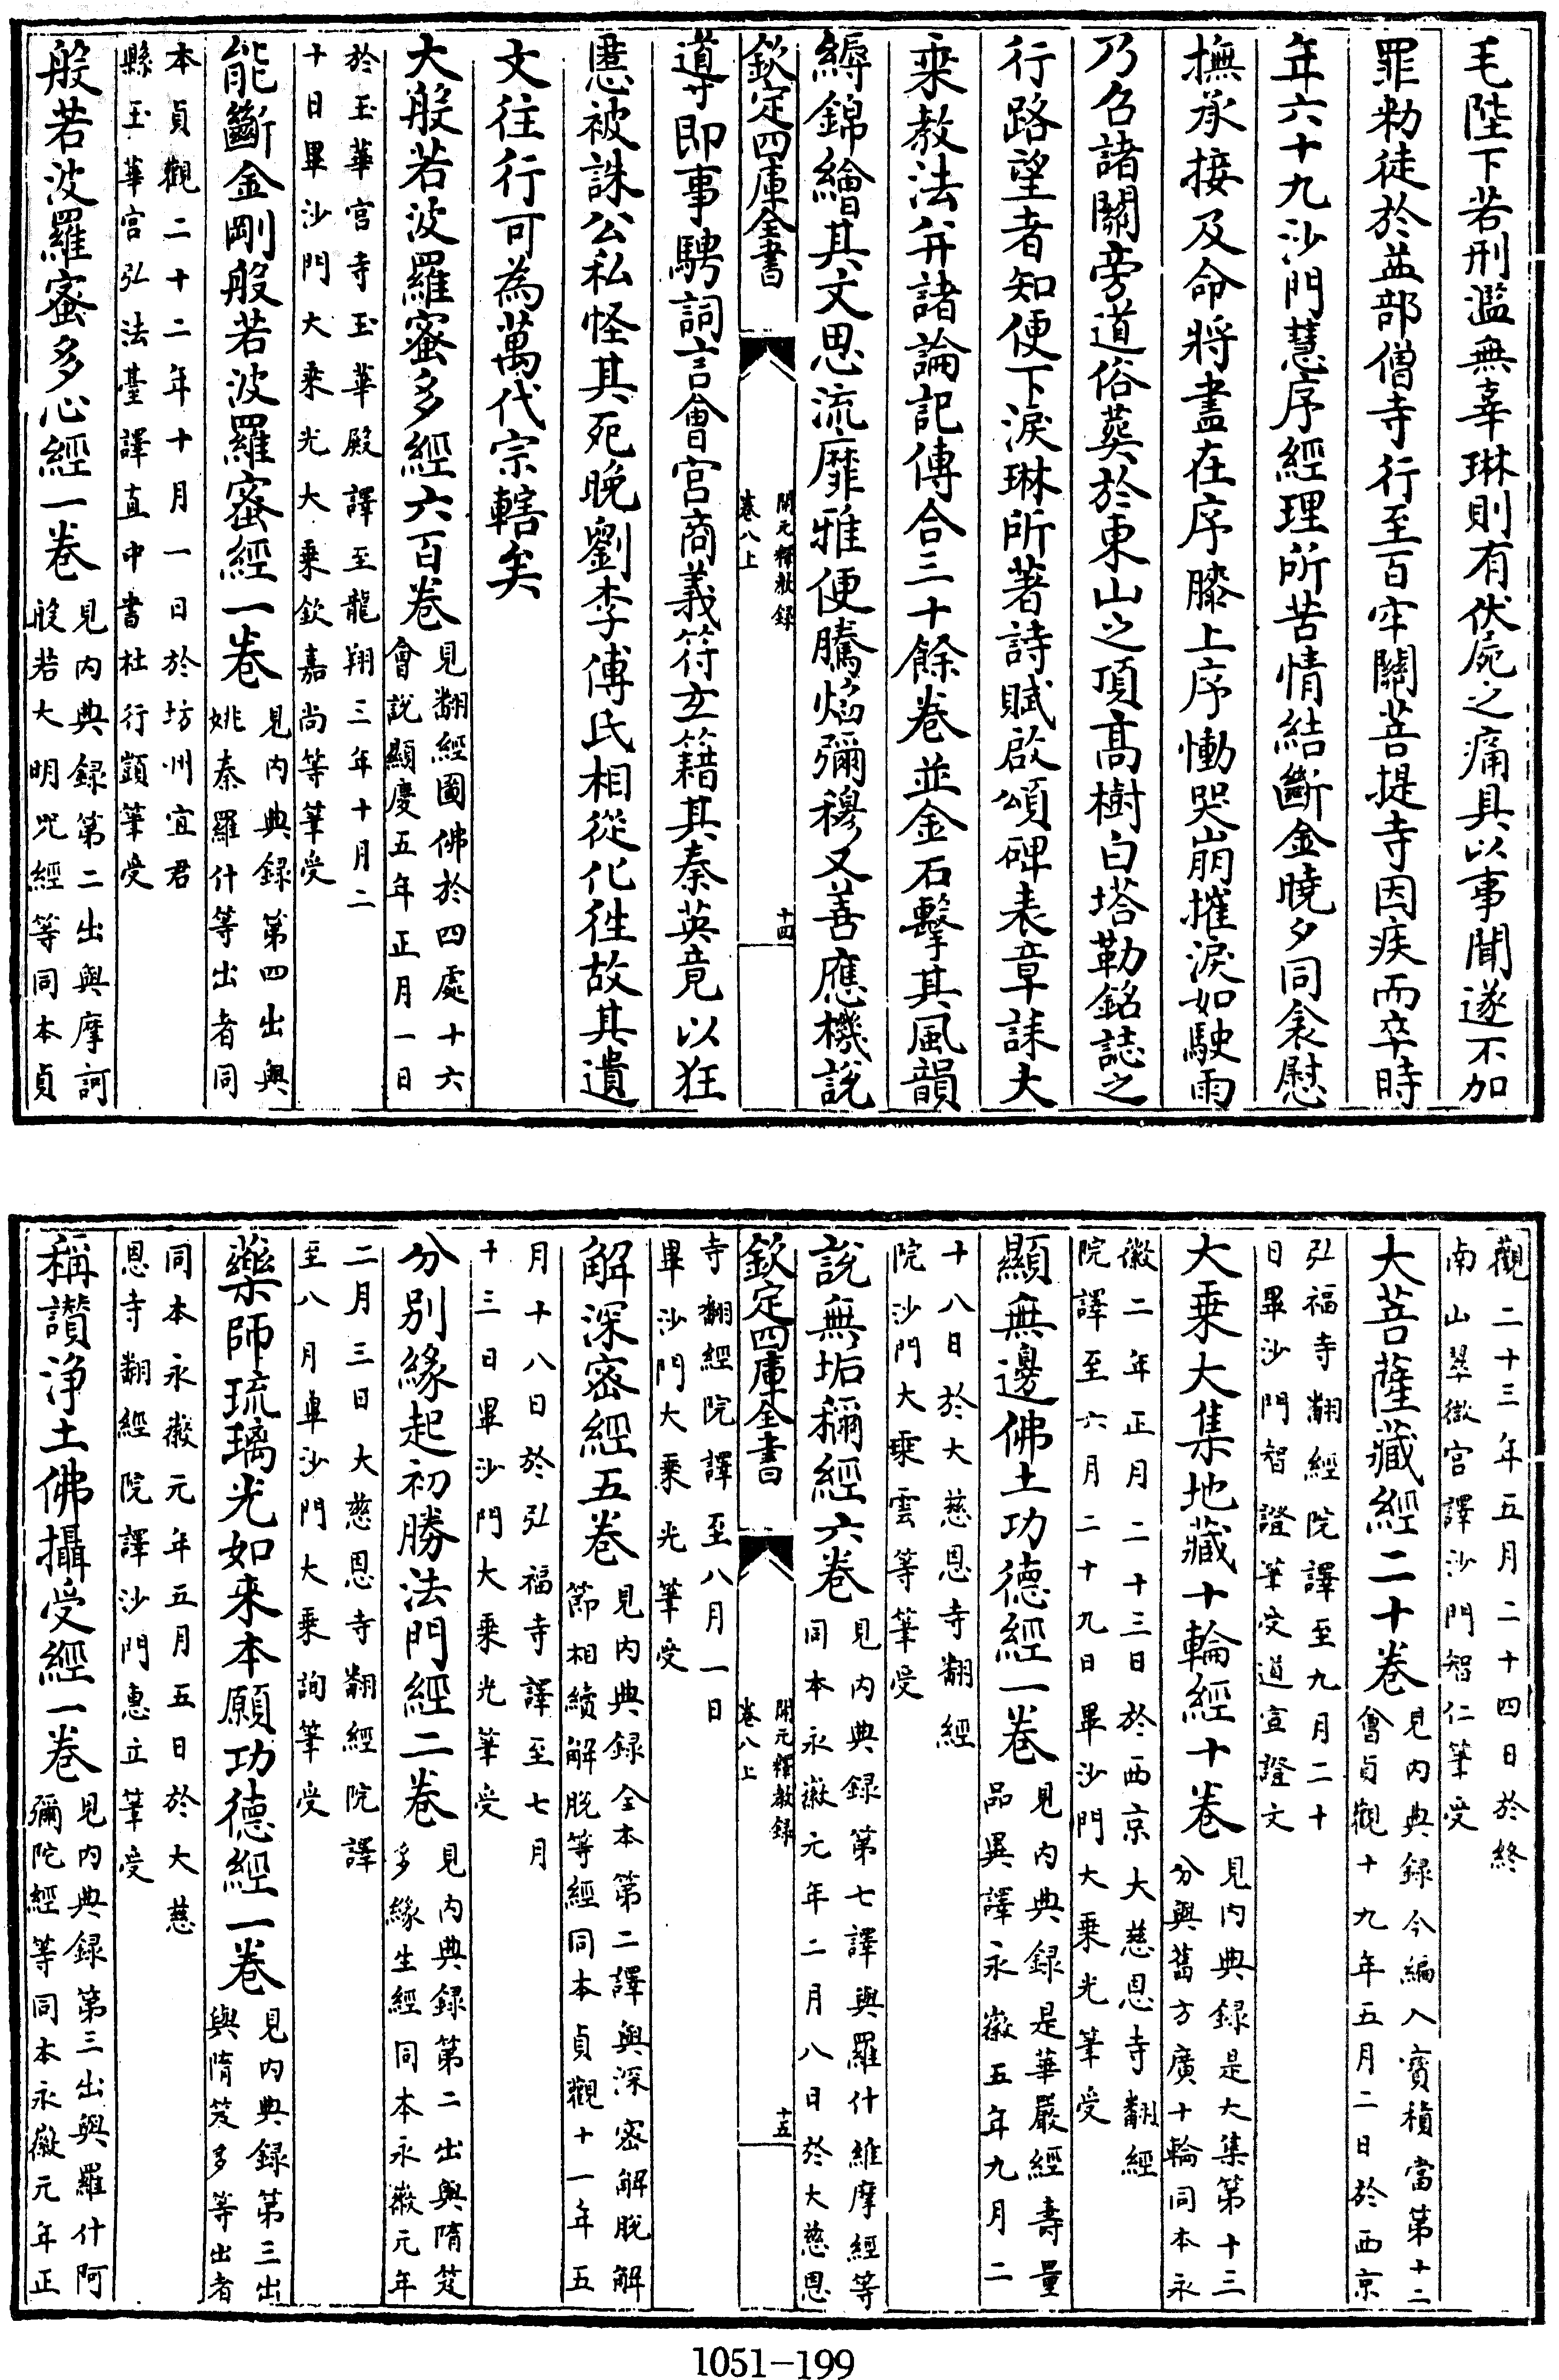 毛陛下若刑濫無辜琳則有伏屍之痛具以事聞遂不加
罪勑徒於益部僧寺行至百牢關菩提寺因疾而卒時
年六十九沙門慧序經理所苦情結斷金曉夕同衾慰
撫承接及命將盡在序膝上序慟哭崩摧淚如駛雨
乃召諸關旁道俗葬於東山之頂高樹白塔勒銘誌之
行路望者知便下淚琳所著詩賦啟頌碑表章誄大
乗教法并諸論記傳合三十餘卷並金石擊其風韻
縟錦繪其文思流靡雅便騰焰彌穆又善應機說
欽定四庫全書
開元釋教録
卷八上
十四
導即事騁詞言會宫商義符玄籍其秦英竟以狂
慝被誅公私怪其死晚劉李傅氏相從化徃故其遺
文往行可為萬代宗轄矣
大般若波羅蜜多經六百卷
見翻經圖佛於四處十六
會說顯慶五年正月一日
於玉華宫寺玉華殿譯至龍翔三年十月二
十日畢沙門大乗光大乗欽嘉尚等筆受
能斷金剛般若波羅蜜經一卷
見内典録第四出與
姚秦羅什等出者同
本貞觀二十二年十月一日於坊州宜君
縣玉華宫弘法臺譯直中書杜行顗筆受
般若波羅蜜多心經一卷
見内典録第二出與摩訶
般若大明咒經等同本貞
觀二十三年五月二十四日於終
南山翠微宫譯沙門智仁筆受
大菩薩藏經二十卷
見内典録今編入寳積當第十二
會貞觀十九年五月二日於西京
弘福寺翻經院譯至九月二十
日畢沙門智證筆受道宣證文
大乗大集地藏十輪經十卷
見内典録是大集第十三
分與舊方廣十輪同本永
徽二年正月二十三日於西京大慈恩寺翻經
院譯至六月二十九日畢沙門大乗光筆受
顯無邊佛土功德經一卷
見内典録是華嚴經壽量
品異譯永徽五年九月二
十八日於大慈恩寺翻經
院沙門大乗雲等筆受
說無垢稱經六卷
見内典録第七譯與羅什維摩經等
同本永徽元年二月八日於大慈恩
欽定四庫全書
開元釋教録
卷八上
十五
寺翻經院譯至八月一日
畢沙門大乗光筆受
解深密經五卷
見内典録全本第二譯與深密解脫解
節相續解脫等經同本貞觀十一年五
月十八日於弘福寺譯至七月
十三日畢沙門大乗光筆受
分别緣起初勝法門經二卷
見内典録第二出與隋笈
多緣生經同本永徽元年
二月三日大慈恩寺翻經院譯
至八月畢沙門大乗詢筆受
藥師琉璃光如來本願功德經一卷
見内典録第三出
與隋笈多等出者
同本永徽元年五月五日於大慈
恩寺翻經院譯沙門惠立筆受
稱讃浄土佛攝受經一卷
見内典録第三出與羅什阿
彌陀經等同本永徽元年正
1051-199